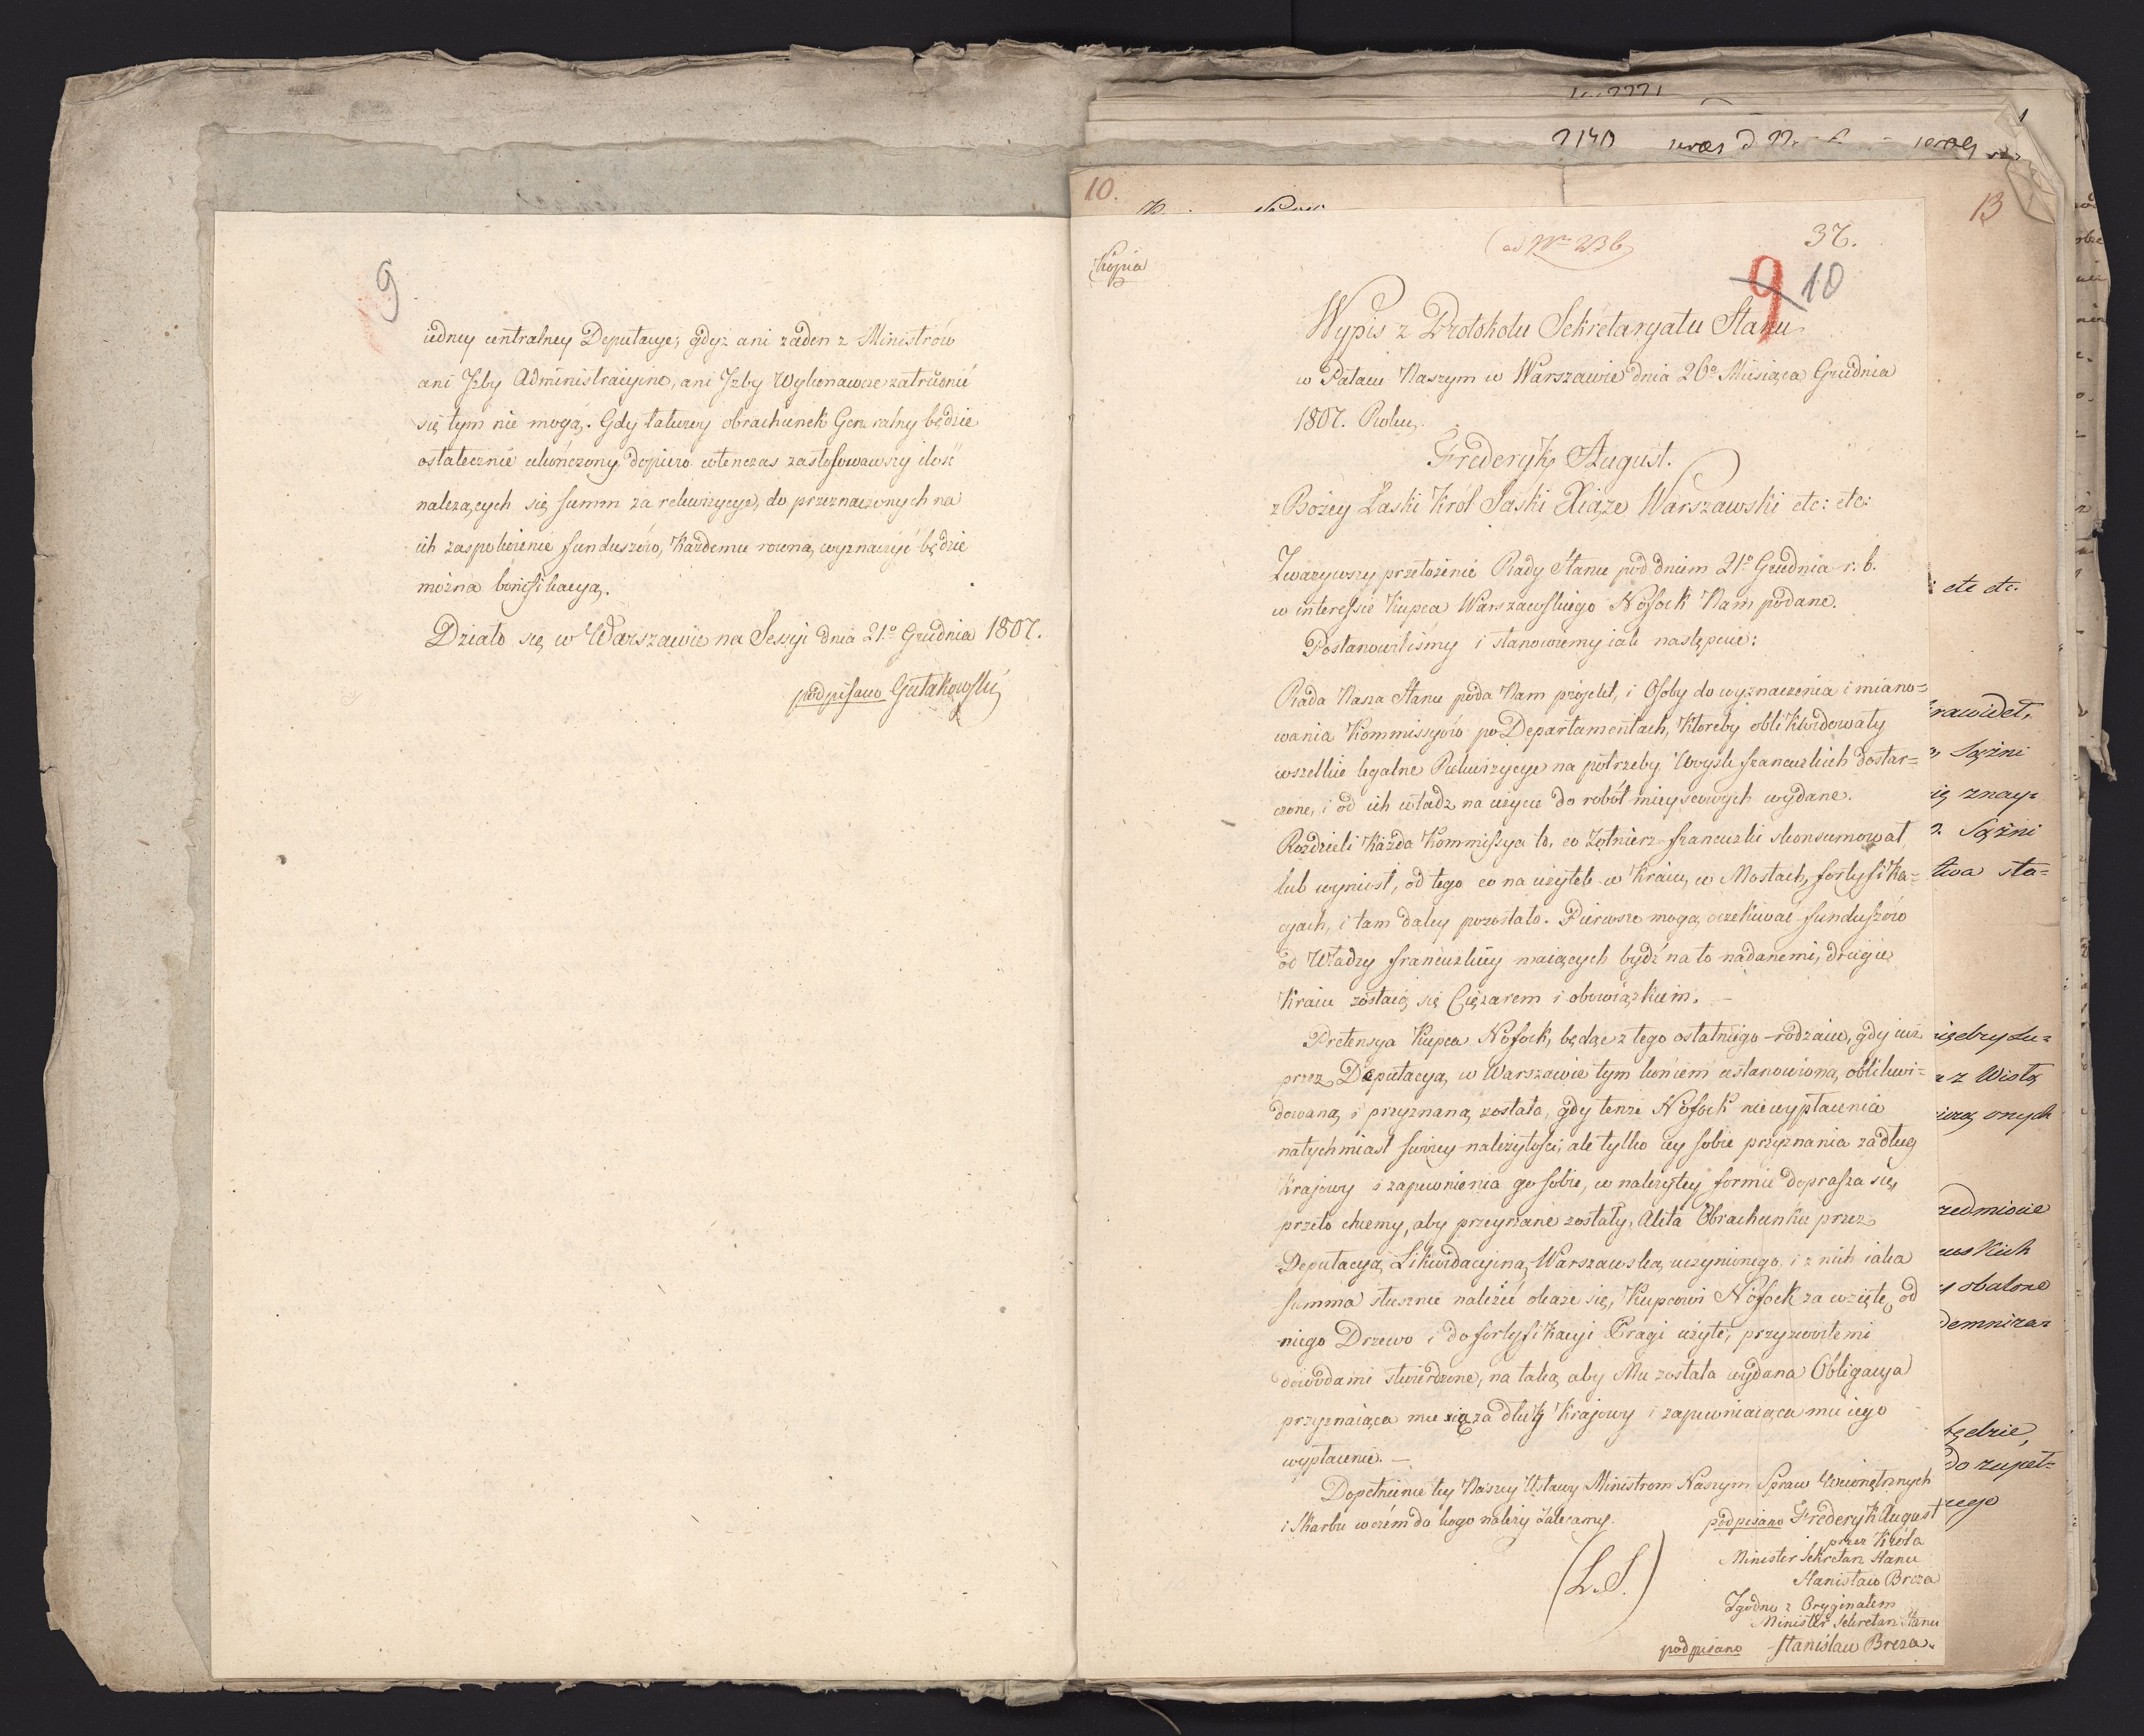 9
iedney centralney Deputacye; gdyż ani żaden z Ministrów
ani Jzby Administracyine, ani Jzby Wykonawcze zatrudnić
się tym nie mogą. Gdy takowy obrachunek Generalny będzie
ostatecznie ukończony, dopiero wtenczas zastosowawszy ilość
należących się summ za rekwizycye, do przeznaczonych na
ich zaspokoienie funduszów, każdemu rowną wyznaczyć będzie
można bonifikacyą.
Działo się w Warszawie na Sessyi dnia 21.º Grudnia 1807.
podpisano Gutakowski
10.
13
Kopia
(ad Nrm 236
37.
9 10
Wypis z Protokołu Sekretaryatu Stanu
w Pałacu Naszym w Warszawie dnia 26º Miesiąca Grudnia
1807. Roku.
Frederyk August.
z Bożey Łaski Król Saski Xiąże Warszawski etc: etc:
Zważywszy przełożenie Rady Stanu pod dniem 21º Grudnia r. b.
w interessie Kupca Warszawskiego Nossok Nam podane.
Postanowiliśmy i stanowiemy iak następuie:
Rada Nasza Stanu poda Nam projekt, i Osoby do wyznaczenia i miano=
wania Kommissyów po Departamentach, któreby oblikwidowały
wszelkie legalne Rekwizycye na potrzeby Woysk francuzkich dostar=
czone, i od ich władz na użycie do robót mieyscowych wydane.
Rozdzieli każda Kommissya to, co Żołnierz francuzki skonsumował
lub wyniosł, od tego co na użytek w Kraiu, w Mostach, fortyfika=
cyach, i tam daley pozostało. Pierwsze mogą oczekiwać funduszów
od Władzy francuzkiey maiących bydź na to nadanemi, drugie
Kraiu zostaią się Ciężarem i obowiązkiem. —
Pretensya Kupca Nosok, będąc z tego ostatniego rodzaiu, gdy iuż
przez Deputacyą w Warszawie tym końcem ustanowioną, oblikwi=
dowaną, i przyznaną została, gdy tenże Nosok nie wypłacenia
natychmiast swoiey należytości, ale tylko iey sobie przyznania za dług
Krajowy i zapewnienia go sobie, w należytey formie doprasza się,
przeto chcemy, aby przeyrzane zostały, Akta Obrachunku przez
Deputacyą Likwidacyiną Warszawską uczynionego, i z nich iaka
summa słusznie należeć okaże się, Kupcowi Nosock za wzięte od
niego Drzewo i do fortyfikacyi Pragi użyte, przyzwoitemi
dowodami stwierdzone, na taką aby Mu została wydana Obligacya
przyznaiąca mu ią za dług Krajowy i zapewniaiąca mu iego
wypłacenie. —
Dopełnienie tey Naszey Ustawy Ministrom Naszym Spraw Wewnętrznych
i Skarbu w czém do kogo należy zalecamy.
podpisano Frederyk August
przez Króla
Minister Sekretarz Stanu
Stanisław Breza
(L. S.)
Zgodno z Oryginałem
Minister Sekretarz Stanu
podpisano Stanisław Breza.
etc etc.
Sążni
znay=
Sążni
sta=
z Wisłą
onych
obalone
będzie,
do zupeł=